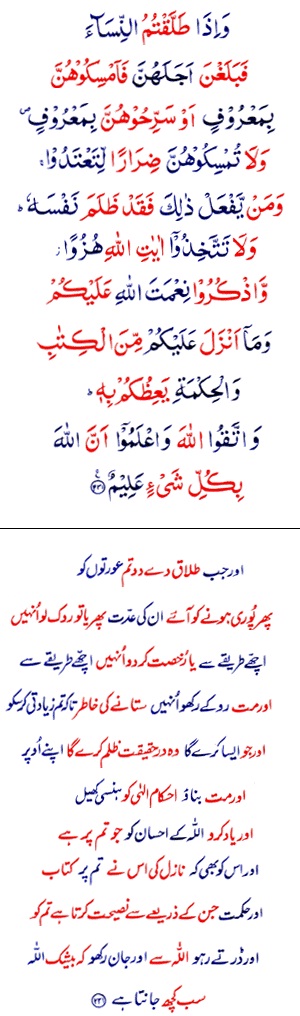 وَاِذَا طَلَّقْتُمُ النِّسَآءَ
فَبَلَغْنَ اَجَلَهُنَّ فَاَمْسِكُوْهُنَّ
بِمَعْرُوْفٍ اَوْ سَرِّحُوْهُنَّ بِمَعْرُوْفٍ ص
وَلَا تُمْسِكُوْهُنَّ ضِرَارًا لِّتَعْتَدُوْا ۚ
وَمَنْ يَّفْعَلْ ذٰلِكَ فَقَدْ ظَلَمَ نَفْسَهٗ ؕ
وَلَا تَتَّخِذُوْٓا اٰيٰتِ اللّٰهِ هُزُوًا ؗ
وَّاذْكُرُوْا نِعْمَتَ اللّٰهِ عَلَيْكُمْ
وَمَآ اَنْزَلَ عَلَيْكُمْ مِّنَ الْكِتٰبِ
وَالْحِكْمَةِ يَعِظُكُمْ بِهٖ ؕ
وَاتَّقُوا اللّٰهَ وَاعْلَمُوْٓا اَنَّ اللّٰهَ
بِكُلِّ شَىْءٍ عَلِيْمٌ
اور جب طلاق دے دو تم عورتوں کو
پھر پُوری ہونے کو آئے ان کی عدّت پھر یا تو روک لو اُنہیں
اچھّے طریقے سے یا رُخصت کر دو اُنہیں اچھّے طریقے سے
اور مت روکے رکھو اُنہیں ستانے کی خاطر تاکہ تم زیادتی کر سکو
اور جو ایسا کرے گا وہ درحقیقت ظلم کرے گا اپنے اُوپر
اور مت بناؤ احکامِ الٰہی کو ہنسی کھیل
اور یاد کرو اللہ کے احسان کو جو تم پر ہے
اور اس کو بھی کہ نازل کی اس نے تم پر کتاب
اور حکمت جن کے ذریعے سے نصیحت کرتا ہے تم کو
اور ڈرتے رہو اللہ سے اور جان رکھو کہ بیشک اللہ
سب کچھ جانتا ہے